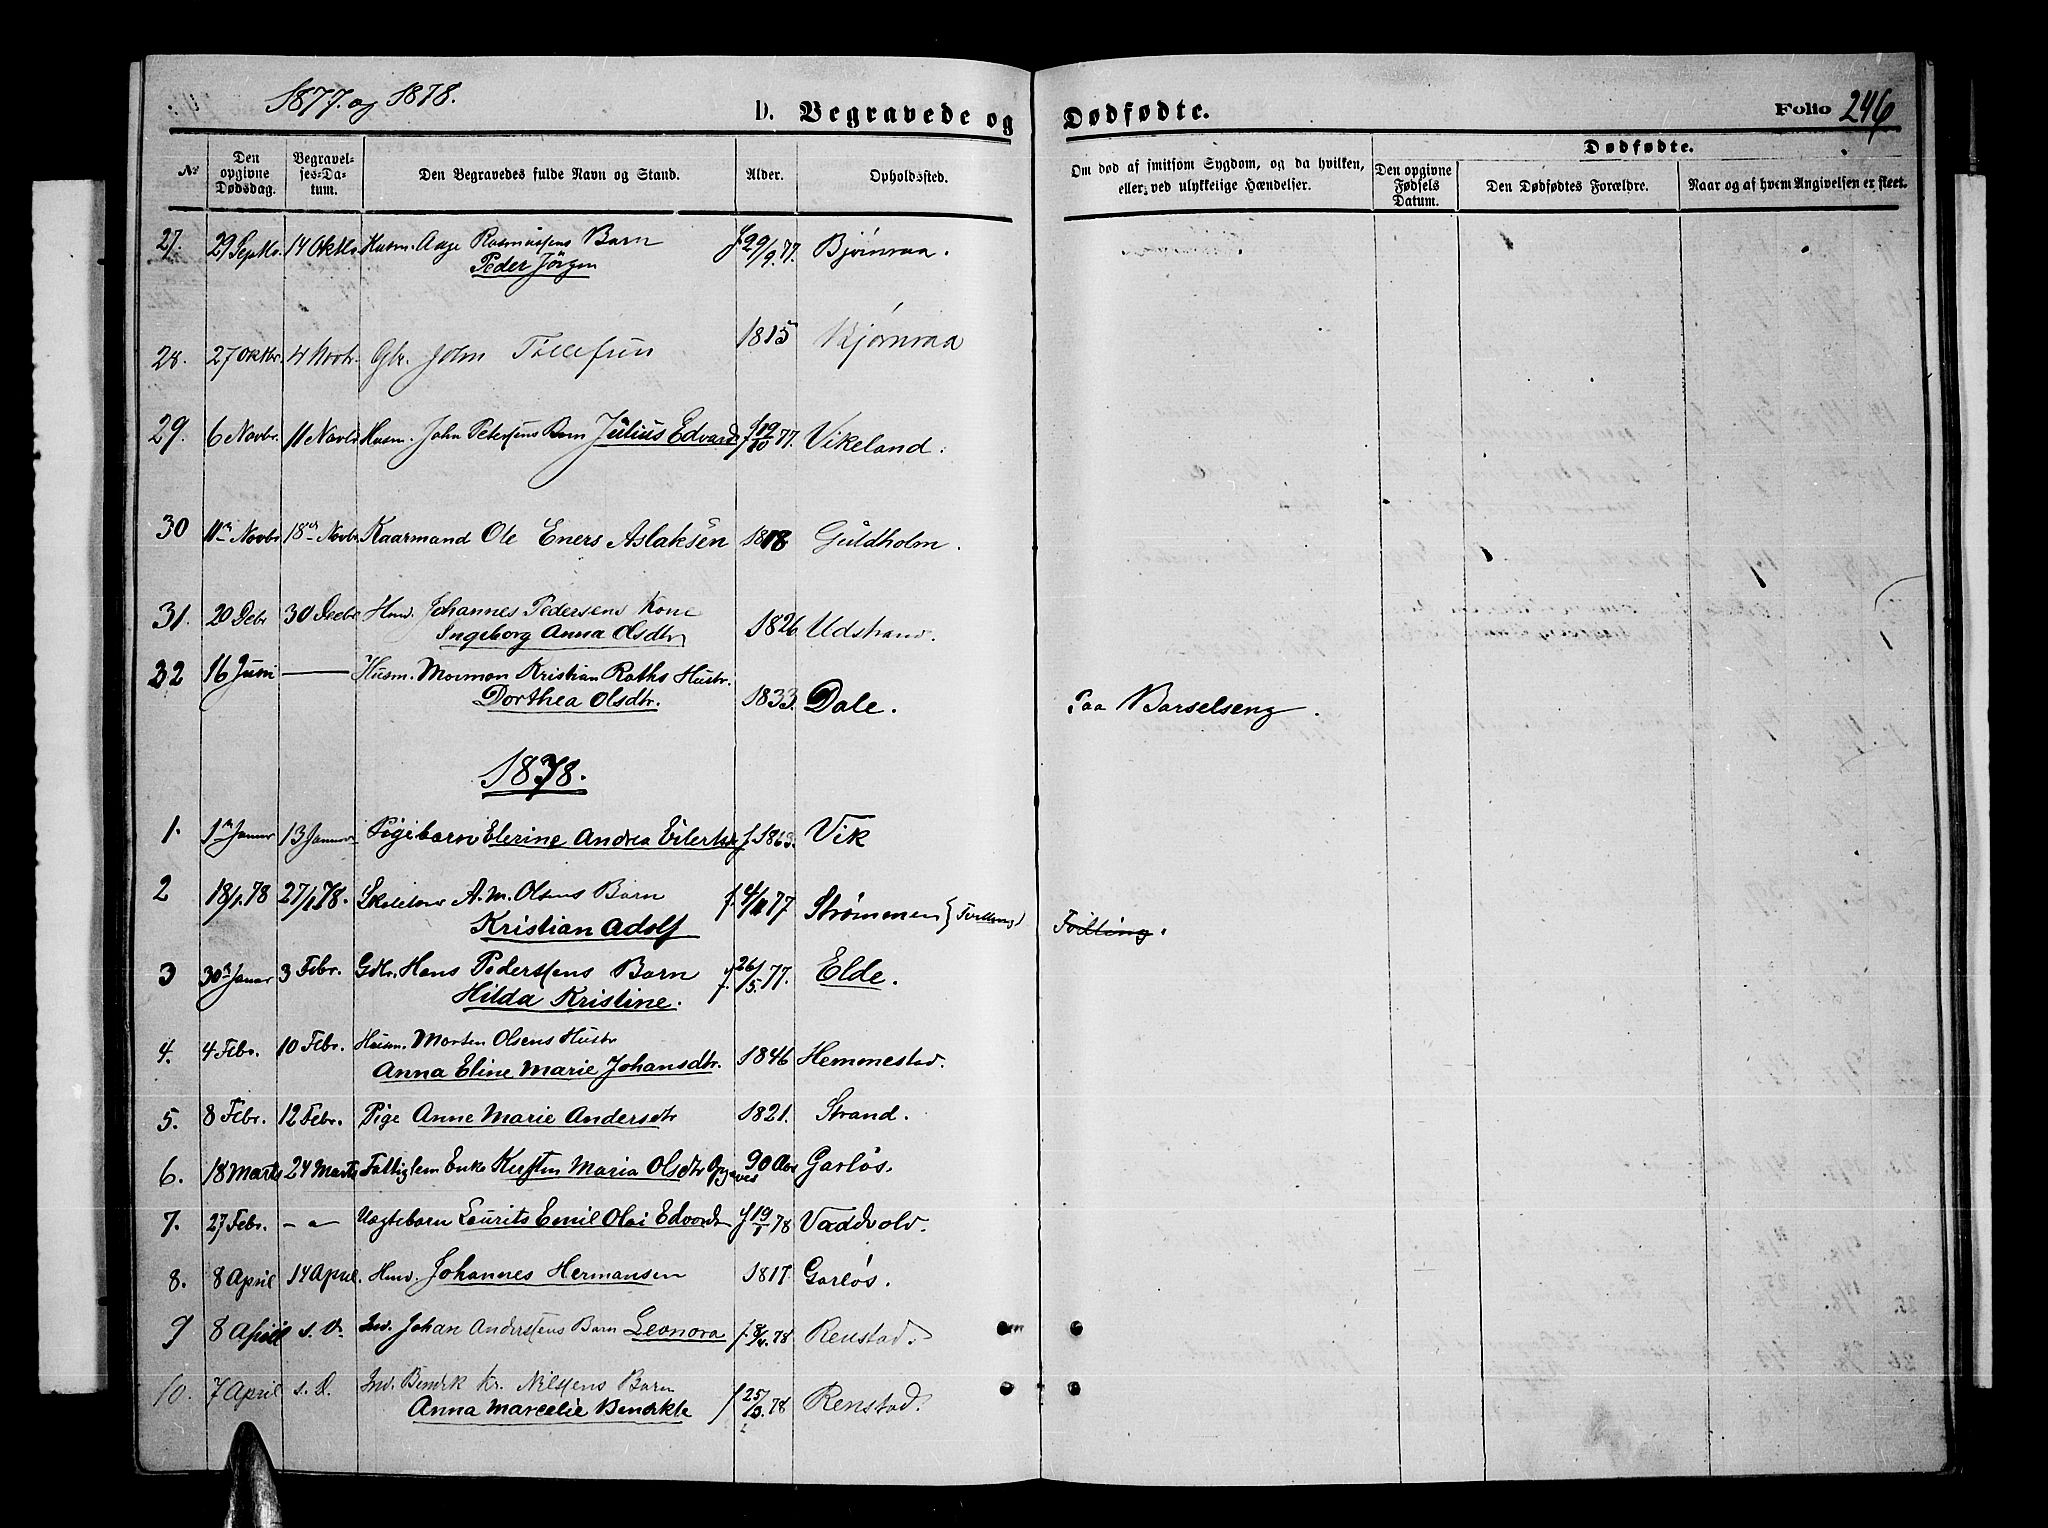 1877. og 1878.
D. Begravede og Dødfødte.
Folio 246
No
Den opgivne Dødsdag.
Begravel-ses-Da-tum.
Den Begravedes fulde Navn og Stand.
Alder.
Opholdssted.
Om død af smitsom Sygdom, og da hvilken, eller ved ulykkelige Hændelser.
Dødfødte.
Den opgivne Fødsels Datum.
Den Dødfødtes Forældre.
Naar og af hvem Angivelsen er skeet.
27. 29 Septbr. 14 Oktbr. Husm. Aage Rasmussens Barn f 29/9.77. Bjørnraa.
Peder Jörgen
28. 27 Oktbr. 4 Novbr. Gbr. John Tollefsen 1815 Bjørnraa
29. 6 Novbr. 11 Novbr Husm. John Petersens Barn Julius Edvard f 19/10 77. Vikeland.
30 11te Novbr 18de Novbr Kaarmand Ole Eners Aslaksen 1818 Guldholm.
31. 20 Debr 30 Decbr Hmd. Johannes Pedersens Kone
Ingeborg Anna Olsdtr 1826. Udstrand.
32 16 Juni — Husm. Mormon Kristian Raths Hustr.
Dorthea Olsdtr. 1833. Dale. Paa Barselseng.
1878.
1. 1ste Januar 13 Januar Pigebarn Elerine Andrea Eilertsd f 1863. Vik
2 18/1.78 27/1 78. A. M. Olsens Barn f. 4/11 77 Strømmen (Tvilling) Tvilling.
Kristian Adolf
3 30te Januar 3 Febr. Gdbr. Hans Pederssens Barn f. 26/5.77. Elde.
Hilda Kristine.
4. 4 Febr. 10 Febr. Husm. Morten Olsens Hustr
Anna Eline Marie Johansdtr. 1846 Hemmestad.
5. 8 Febr. 12 Febr. Pige Anne Marie Andersdtr 1821. Strand.
6. 18 Marts 24 Marts Fattiglem Enke Kirsten Maria Olsdtr Opgaves 90 Aar Garløs.
7. 27 Febr. - " - Uægtebarn Laurits Emil Olai Edvards f 19/1 78 Vaddvold.
8. 8 April 14 April. Hmd. Johannes Hermansen 1817. Garløs.
9 8 April s. D. Ind. Johan Anderssens Barn Leonora Renstad.
10. 7 April s. D. Ind. Bendik Kr. Nilssens Barn
Anna Marcelie Bendikte Renstad.